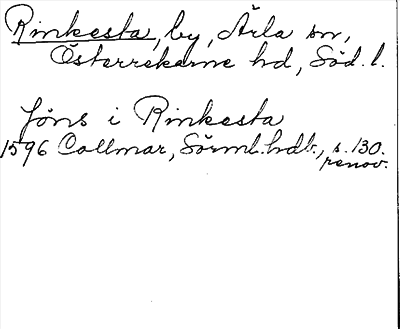 Rinkesta, by, Ärla sn,
Österrekarne hd, Söd. l.
Jöns i Rinkesta
1596 Collmar, Sörml. hdb., s. 130.
renov.